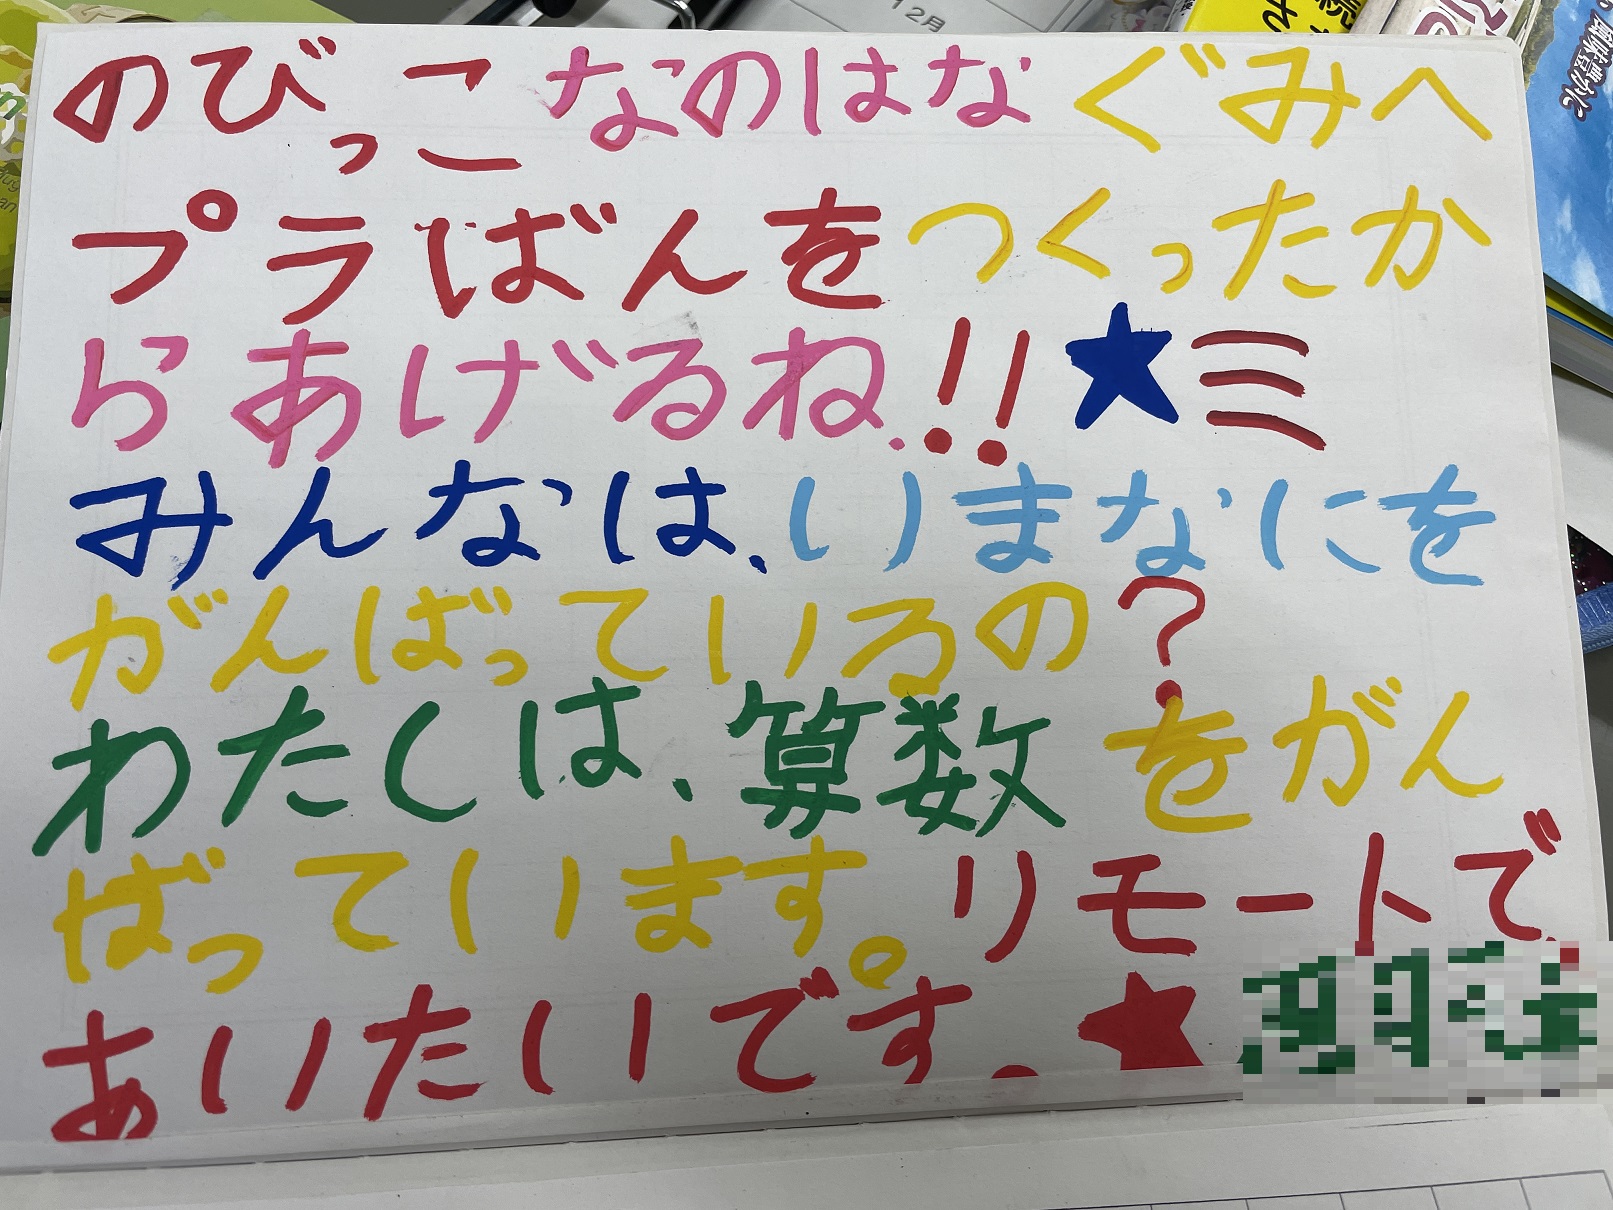 12月
のびっこ なのはなぐみへ
プラばんをつくったか
らあげるね.!!★ミ
みんなは、いまなにを
がんばっているの?
わたしは、算数をがん
ばっています。リモートで
あいたいです。★